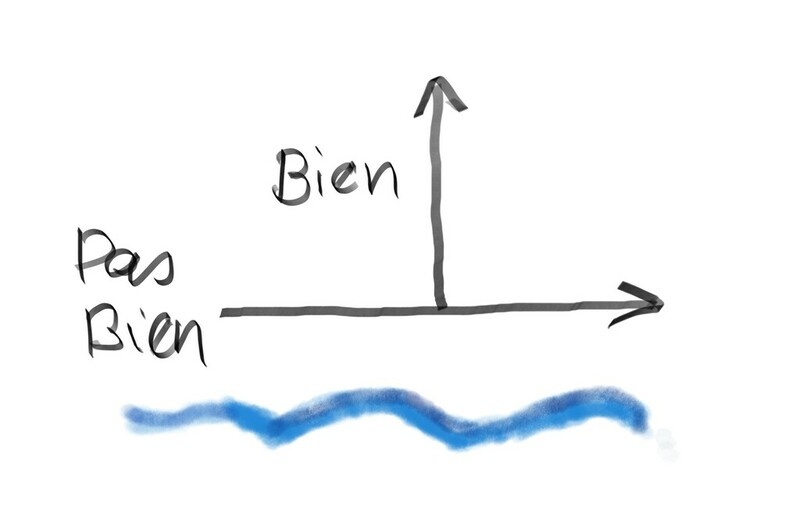 Bien
Pas
Bien